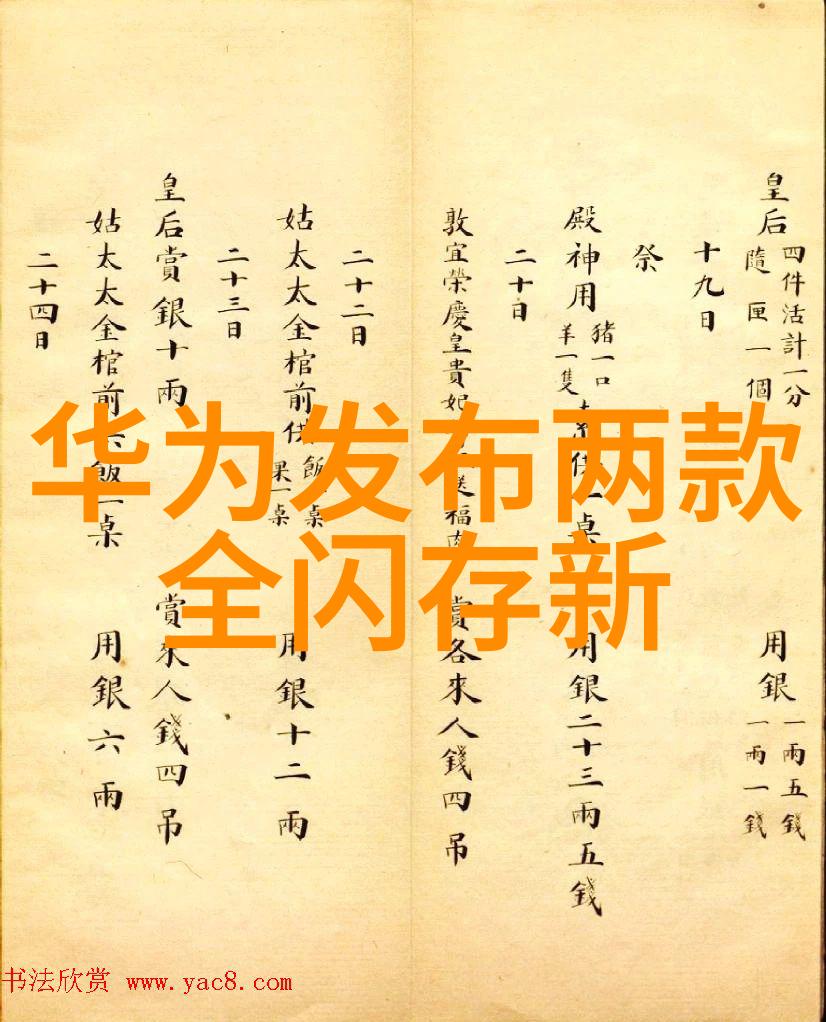 皇后 四件活計一分 隨匣一個 用銀 一兩五錢 一兩一錢
十九日
祭
殿神用 猪一口 羊一隻 供一桌 用銀二十三兩五錢
二十日
敦宜榮慶皇貴妃 送福肉 賞各來人錢四吊
二十二日
姑太太金棺前供 飯一桌 果一桌 用銀十二兩
二十三日
皇后賞銀十兩 賞來人錢四吊
姑太太金棺前供飯一桌 用銀六兩
二十四日
华为发布两款
全闪存新
书法欣赏 www.yac8.com